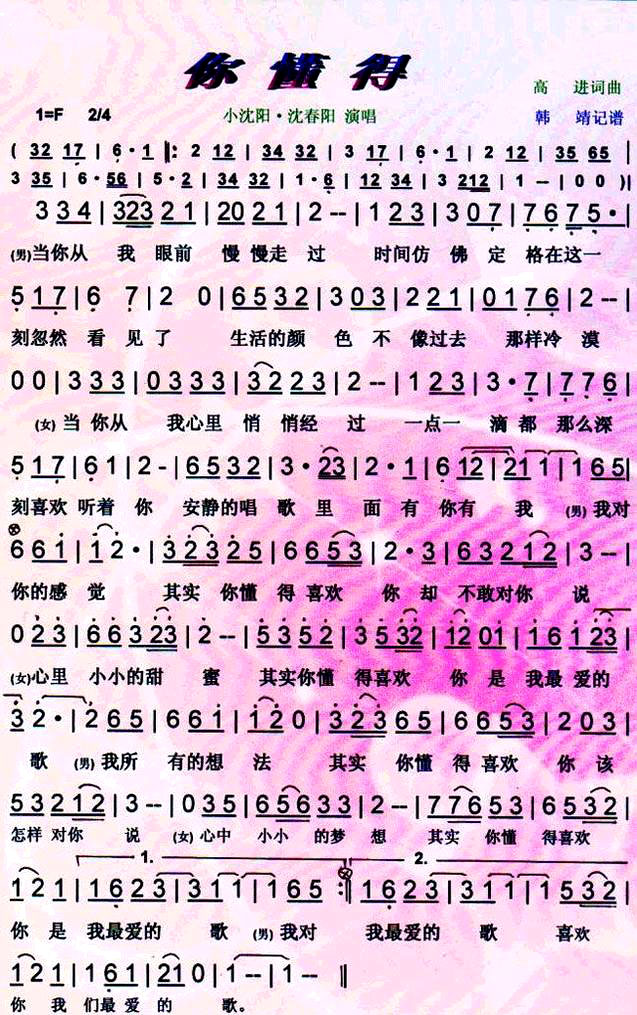 你懂得
高 进词曲
1=F 2/4 小沈阳·沈春阳 演唱 韩 靖记谱
( 32 17 | 6·1 |: 2 12 | 34 32 | 3 17 | 6·1 | 2 12 | 35 65 |
3 35 | 6·56 | 5·2 | 34 32 | 1·6 | 12 34 | 3 212 | 1 -- | 0 0 )|
3 3 4 | 323 2 1 | 20 2 1 | 2 -- | 1 2 3 | 3 0 7 | 7 6 7 5·|
(男)当你从 我 眼前 慢 慢走 过 时间仿 佛 定 格在这一
5 1 7 | 6 7 | 2 0 | 6 5 3 2 | 3 0 3 | 2 2 1 | 0 1 7 6 | 2 -- |
刻忽然 看 见 了 生活的颜 色 不 像过去 那样冷 漠
0 0 | 3 3 3 | 0 3 3 3 | 3 2 2 3 | 2 -- | 1 2 3 | 3·7 | 7 7 6 |
(女)当 你从 我心里 悄 悄经 过 一点一 滴都 那么深
5 1 7 | 6 1 | 2 - | 6 5 3 2 | 3·23 | 2·2 | 0 6 1 | 6 12 | 21 1 | 1 6 5 |
刻喜欢 听着 你 安静的唱 歌 里 面 有 你有 我 (男)我对
6 6 1 | 1 2·| 3 2 3 2 5 | 6 6 5 3 | 2·3 | 6 3 2 1 2 | 3 -- |
你的感 觉 其实 你懂 得 喜欢 你 却 不敢对你 说
0 2 3 | 6 6 3 23 | 2 -- | 5 3 5 2 | 3 5 32 | 12 01 | 1 6 1 23 |
(女)心里 小小的甜 蜜 其实你懂 得喜欢 你 是 我最 爱的
3 2·| 2 6 5 | 6 6 1 | 1 2 0 | 3 2 3 2 | 3 6 5 | 6 6 5 3 | 2 0 3 |
歌 (男)我所 有的想 法 其实 你懂 得 喜欢 你 该
5 3 2 1 2 | 3 -- | 0 3 5 | 6 5 6 3 3 | 2 -- | 7 7 6 5 3 | 6 5 3 2 |
怎样 对你 说 (女)心中 小小 的梦 想 其实 你懂 得喜欢
1. 2.
1 2 1 | 1 6 2 3 | 3 1 1 | 1 6 5 :| 1 6 2 3 | 3 1 1 | 1 5 3 2 |
你 是 我最爱的 歌 (男)我对 我最爱的 歌 喜欢
1 2 1 | 1 6 1 | 2 1 0 | 1 -- | 1 -- ‖
你 我 们最 爱 的 歌。